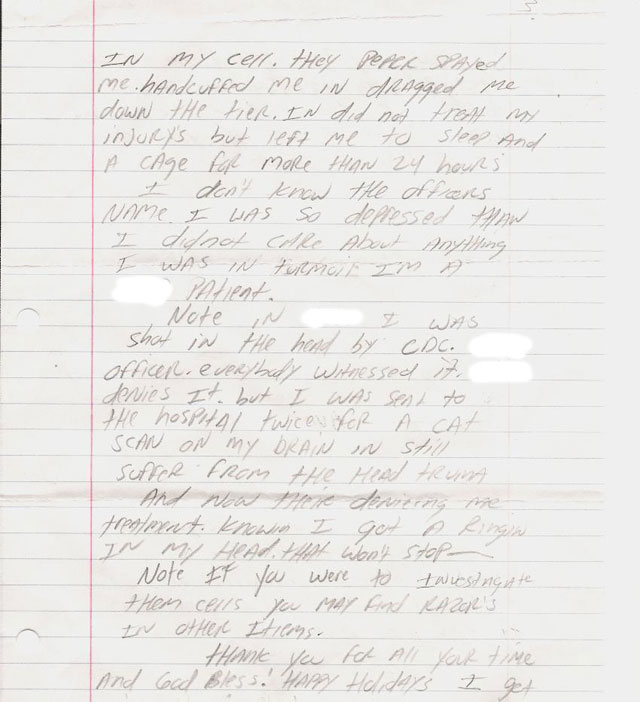 3
IN my cell. they PePER SPAyed
me. handcuffed me in dragged me
down the tier. IN did not treat my
injury's but left me to sleep And
A cage for more than 24 hours
I don't know the officers
NAME. I was so depressed thAN
I didnot CARE About Anything
I was in turmoil I'm A
PAtient.
Note IN I was
shot in the head by CDC.
officer. everybody witnessed it.
denies It. but I was sent to
the hospitAl twice for A CAt
SCAN ON my BRAIN IN still
suffer from the Head truma
And Now there denieing me
treatment. Knowin I got A Ringin
IN my HeAd. that won't stop—
Note If you were to Investigate
them cells you may find RAZOR'S
IN other Itiems.
THANK you for All your time
And God Bless! HAPPY Holidays I get